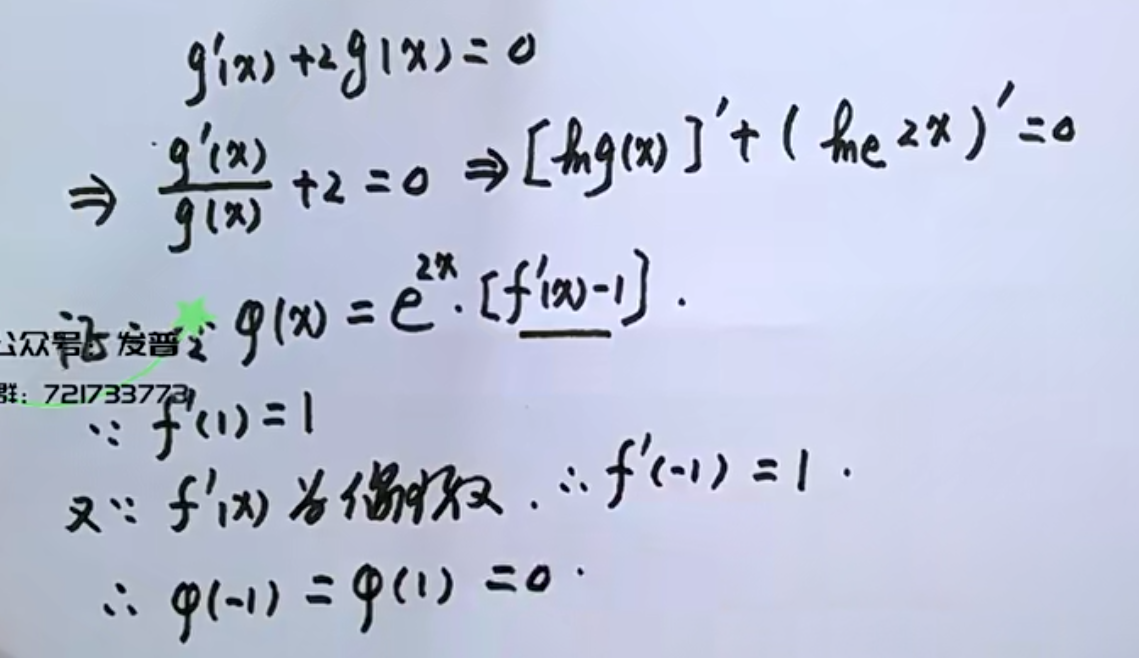 g'(x)+2g(x)=0
⇒ g'(x)/g(x) +2=0 ⇒ [ln g(x)]'+(ln e^2x)'=0
记 φ(x)=e^2x·[f'(x)-1].
公众号:发普
群:721733773
∵ f'(1)=1
又∵ f'(x)为偶函数.∴ f'(-1)=1.
∴ φ(-1)=φ(1)=0.